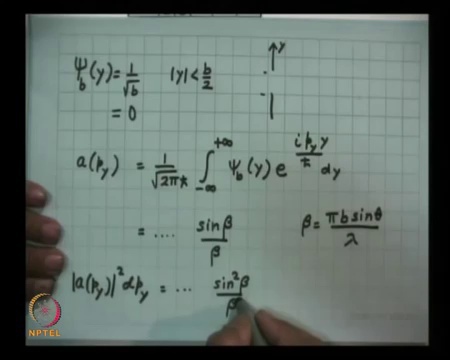 ψ_b(y) = 1/√b |y| < b/2 y
= 0
a(p_y) = 1/√(2πħ) ∫_{-∞}^{+∞} ψ_b(y) e^{i p_y y/ħ} dy
= .... sin β/β β = πb sinθ/λ
|a(p_y)|² dp_y = ... sin²β/β
NPTEL